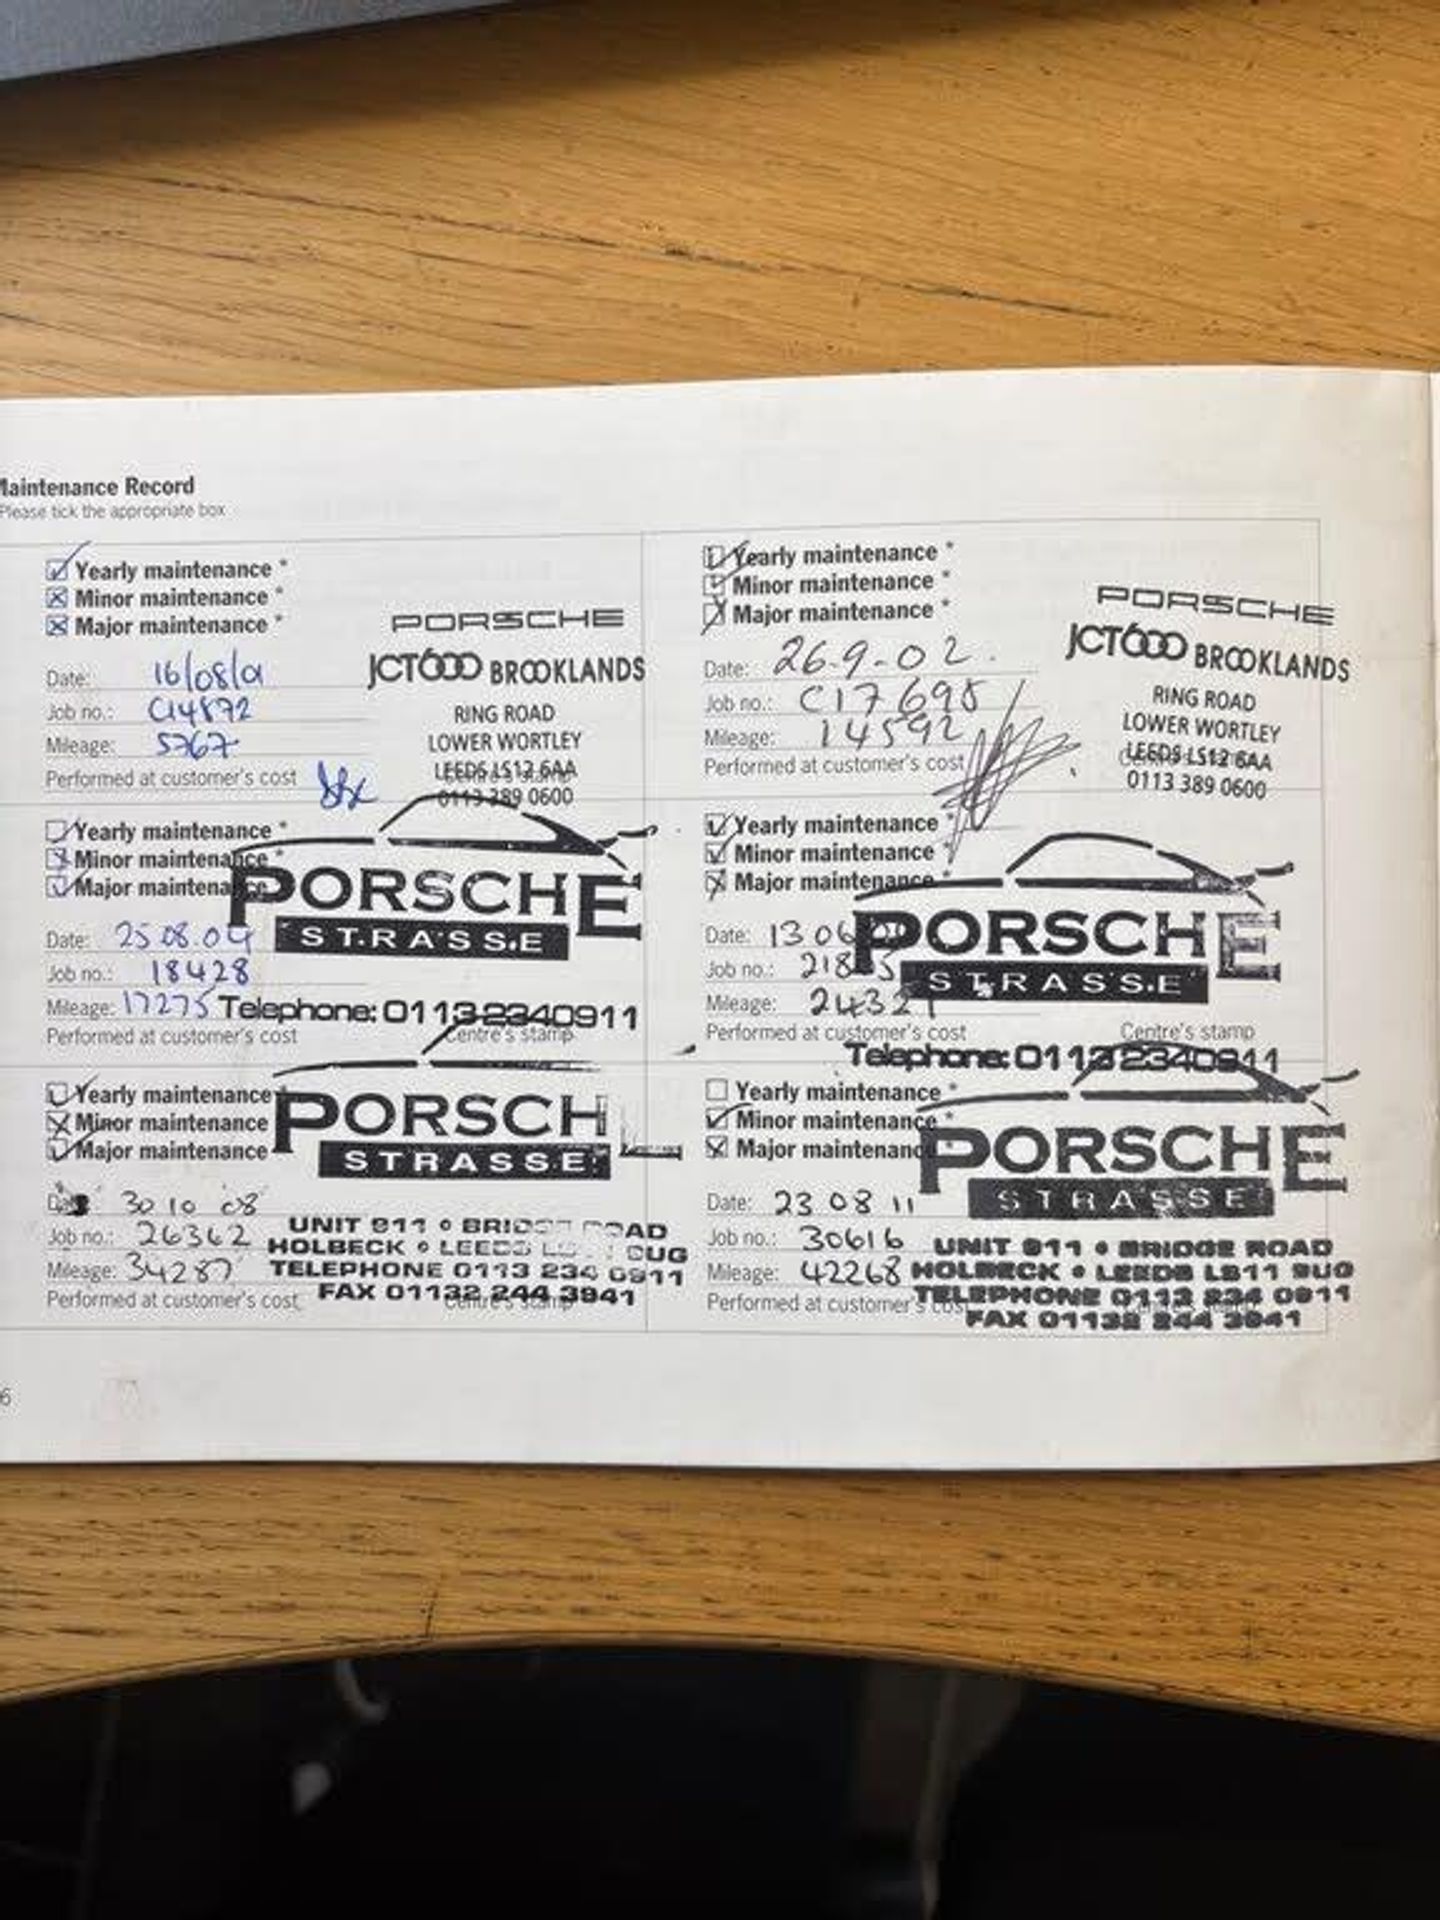 Maintenance Record
Please tick the appropriate box
Yearly maintenance *
Minor maintenance *
Major maintenance *
Date: 16/08/01
Job no.: C14872
Mileage: 5767
Performed at customer's cost
PORSCHE
JCT600 BROOKLANDS
RING ROAD
LOWER WORTLEY
LEEDS LS12 6AA
Centre's stamp
0113 389 0600
Yearly maintenance *
Minor maintenance *
Major maintenance *
Date: 26-9-02.
Job no.: C17695
Mileage: 14592
Performed at customer's cost
PORSCHE
JCT600 BROOKLANDS
RING ROAD
LOWER WORTLEY
LEEDS LS12 6AA
0113 389 0600
Yearly maintenance *
Minor maintenance *
Major maintenance
PORSCHE
STRASSE
Date: 25 08 04
Job no.: 18428
Mileage: 17275
Telephone: 0113 2340911
Performed at customer's cost
Centre's stamp
Yearly maintenance *
Minor maintenance *
Major maintenance *
PORSCHE
STRASSE
Date: 13 06
Job no.:
Mileage: 24321
Performed at customer's cost
Centre's stamp
Telephone: 0113 2340911
Yearly maintenance *
Minor maintenance *
Major maintenance
PORSCHE
STRASSE
Date: 30 10 08
Job no.: 26362
Mileage: 34287
Performed at customer's cost
UNIT 911 • BRIDGE ROAD
HOLBECK • LEEDS
TELEPHONE 0113 234 0911
FAX 01132 244 3941
Centre's stamp
Yearly maintenance *
Minor maintenance *
Major maintenance
PORSCHE
STRASSE
Date: 23 08 11
Job no.: 30616
Mileage: 42268
Performed at customer's cost
UNIT 911 • BRIDGE ROAD
HOLBECK • LEEDS LS11 9UG
TELEPHONE 0113 234 0911
FAX 01132 244 3941
6